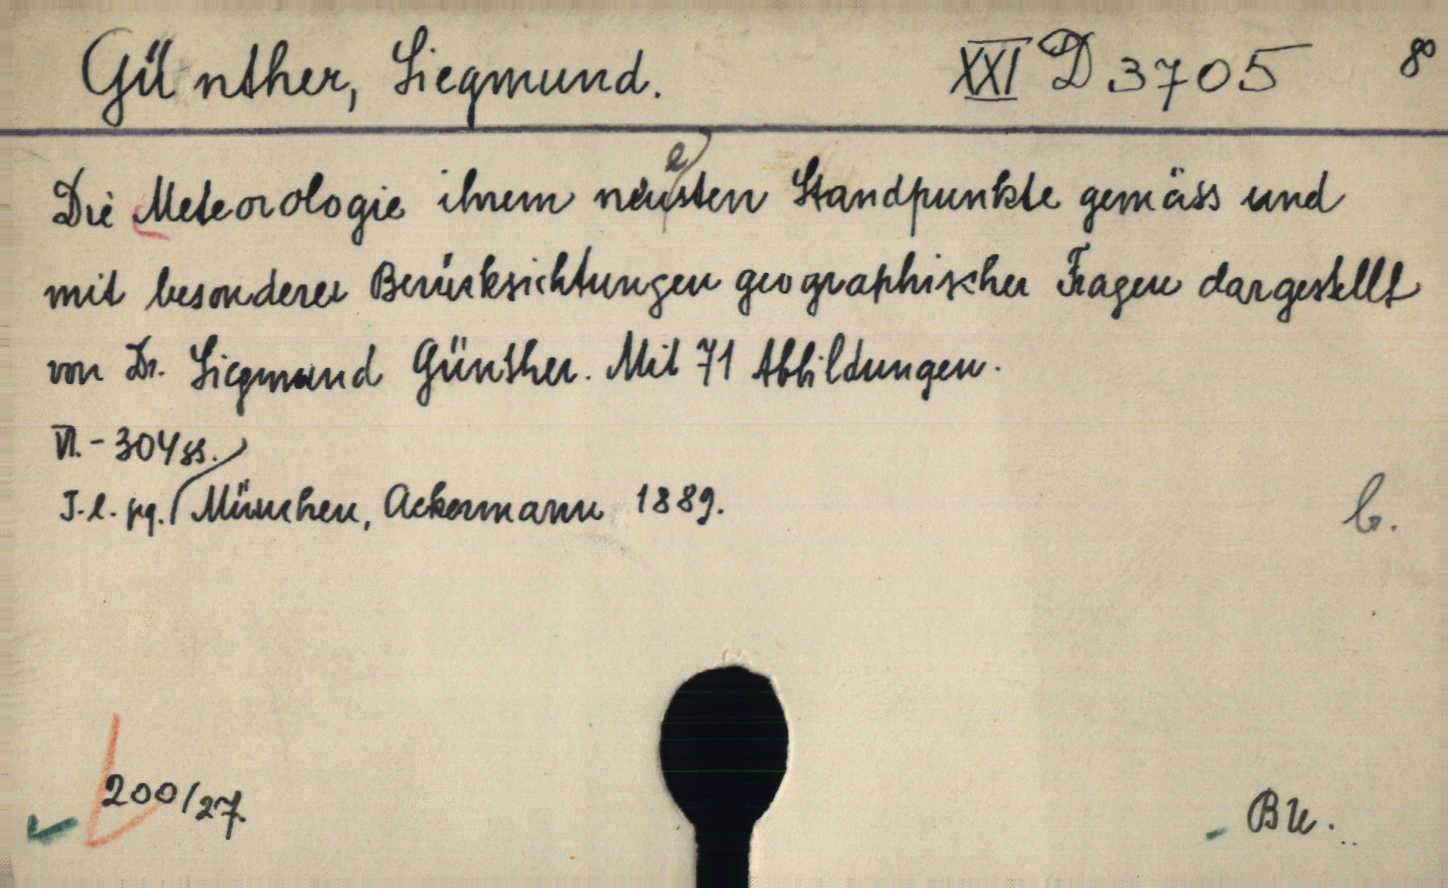 Günther, Siegmund. XXI D 3705 8°
Die Meteorologie ihrem neuesten Standpunkte gemäss und
mit besonderer Berücksichtungen geographischer Fragen dargestellt
von Dr. Siegmund Günther. Mit 71 Abbildungen.
VI.-304 ss.
T.l. pg. München, Ackermann 1889.
b.
200/27.